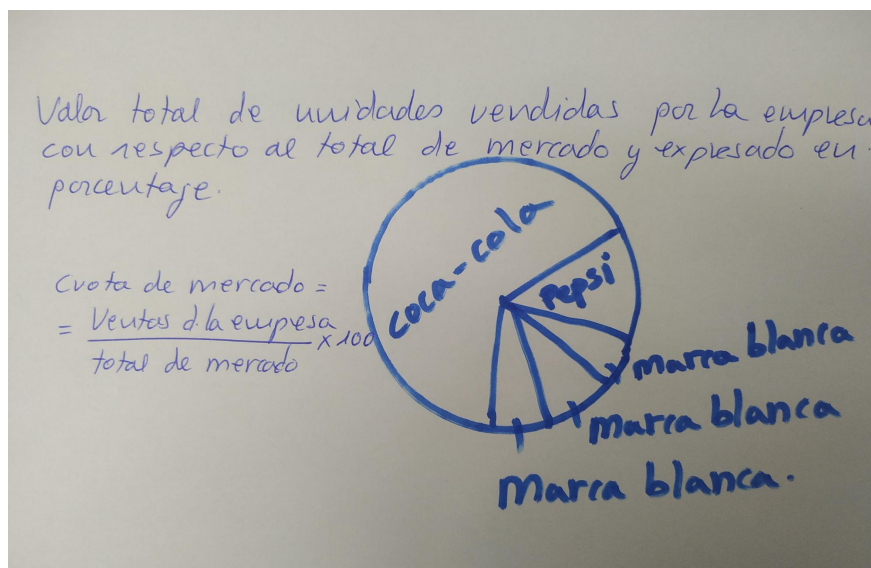 Valor total de unidades vendidas por la empresa
con respecto al total de mercado y expresado en
porcentaje.
Cuota de mercado =
= Ventas d la empresa
total de mercado
x 100
coca-cola
Pepsi
marca blanca
marca blanca
marca blanca.